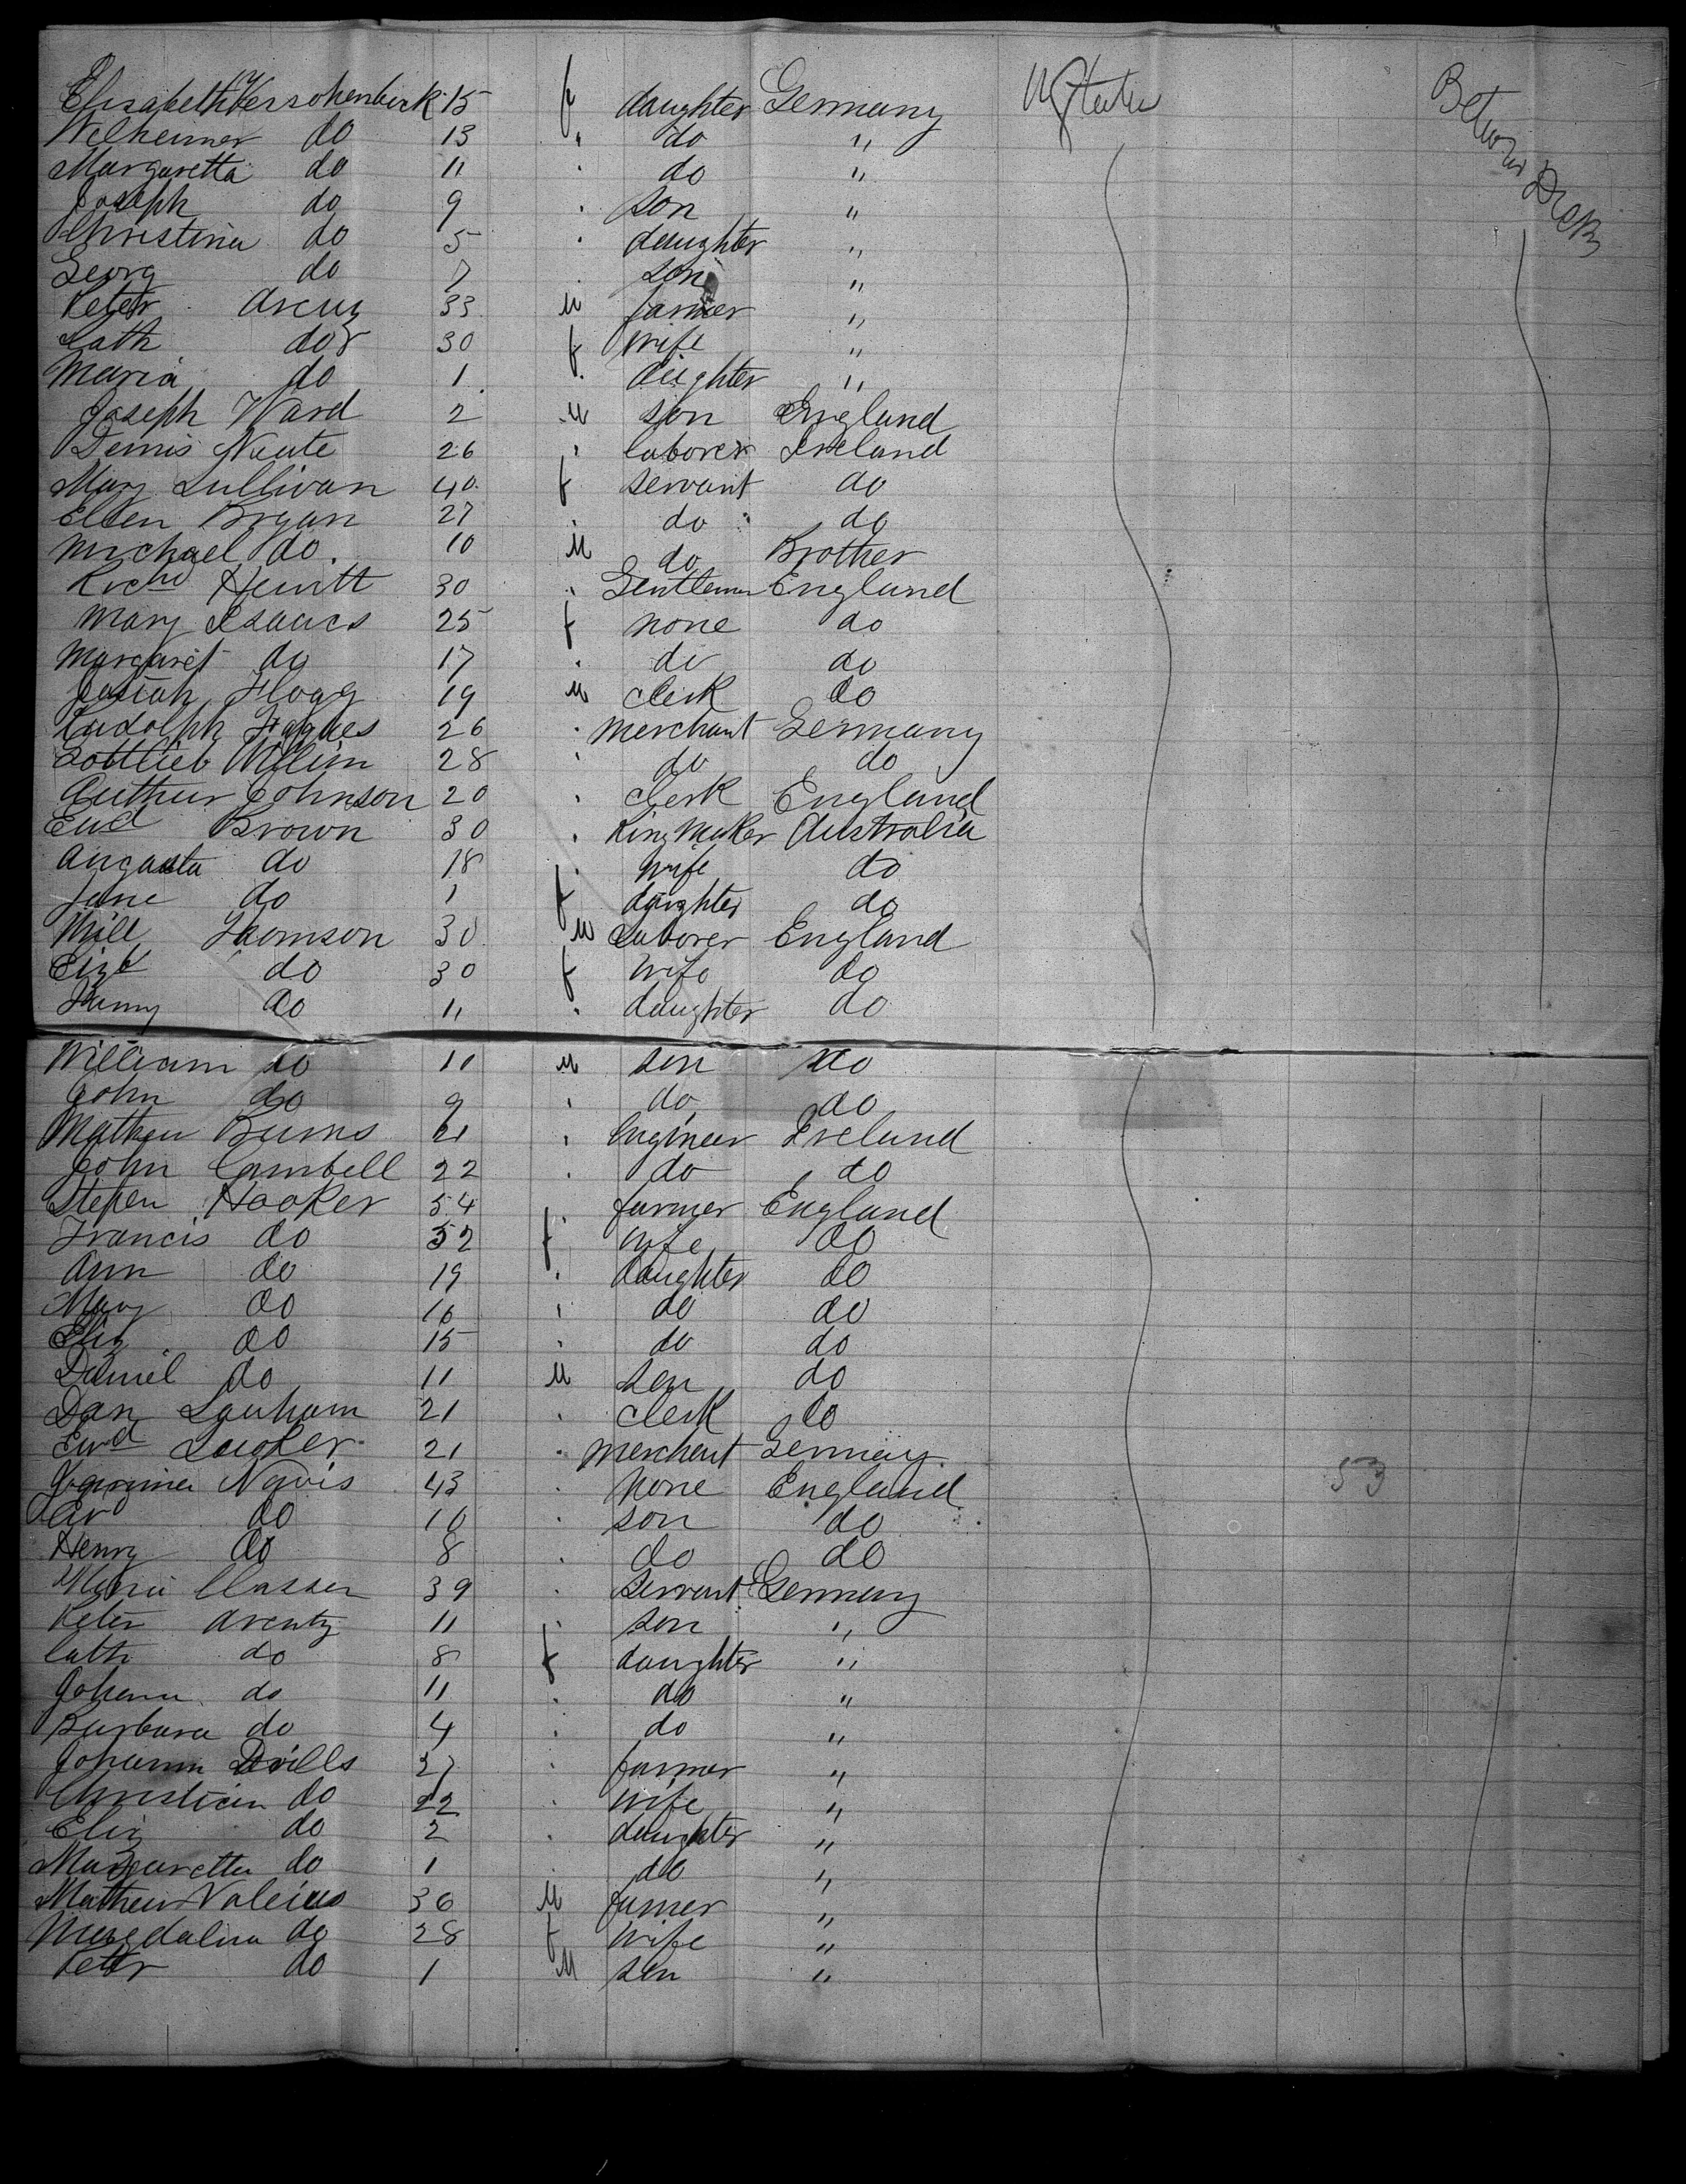 Elisabeth Kerschenberk 15 f daughter Germany U States Between Decks
Wilheimer do 13 " do "
Margaretta do 11 . do "
Joseph do 9 . son "
Christina do 5 . daughter "
Georg do 7 . son "
Peter 33 M farmer "
Cath do 30 f wife "
Maria do 1 . daughter "
Joseph Ward 2 M son England
Dennis Neute 26 " laborer Ireland
Mary Sullivan 40 f servant do
Ellen Bryan 27 . do do
Michael do. 10 M do Brother
Richd Hewitt 30 " Gentleman England
Mary Isaacs 25 f none do
Margaret do 17 . do do
Josiah Hoag 19 M clerk do
Rudolph 26 . merchant Germany
Gottlieb Willim 28 " do do
Authur Johnson 20 . clerk England
Ewd Brown 30 . Ring Maker Australia
Augusta do 18 . wife do
Jane do 1 f daughter do
Will Thomson 30 M Laborer England
Eizb do 30 f wife do
Fanny do 11 . daughter do
William do 10 M son do
John do 9 " do do
Mathew Burns 21 " Engineer Ireland
John Cambell 22 . do do
Stepen Hooker 54 . farmer England
Francis do 52 f wife do
Ann do 19 . daughter do
Mary do 16 " do do
Eliz do 15 . do do
Daniel do 11 M son do
Dan Lanham 21 . clerk do
Ewd 21 . merchant Germany
Navis 43 . None England 53
do 10 . son do
Henry do 8 . do do
Maria Classen 39 . servant Germany
Peter Arentz 11 . son "
Cath do 8 f daughter "
Johann do 11 . do "
Barbara do 4 . do "
Johann 27 . farmer "
Christian do 22 . wife "
Eliz do 2 . daughter "
Margaretta do 1 . do "
Mathew Valeius 36 M farmer "
Magdalina do 28 f wife "
Peter do 1 M son "